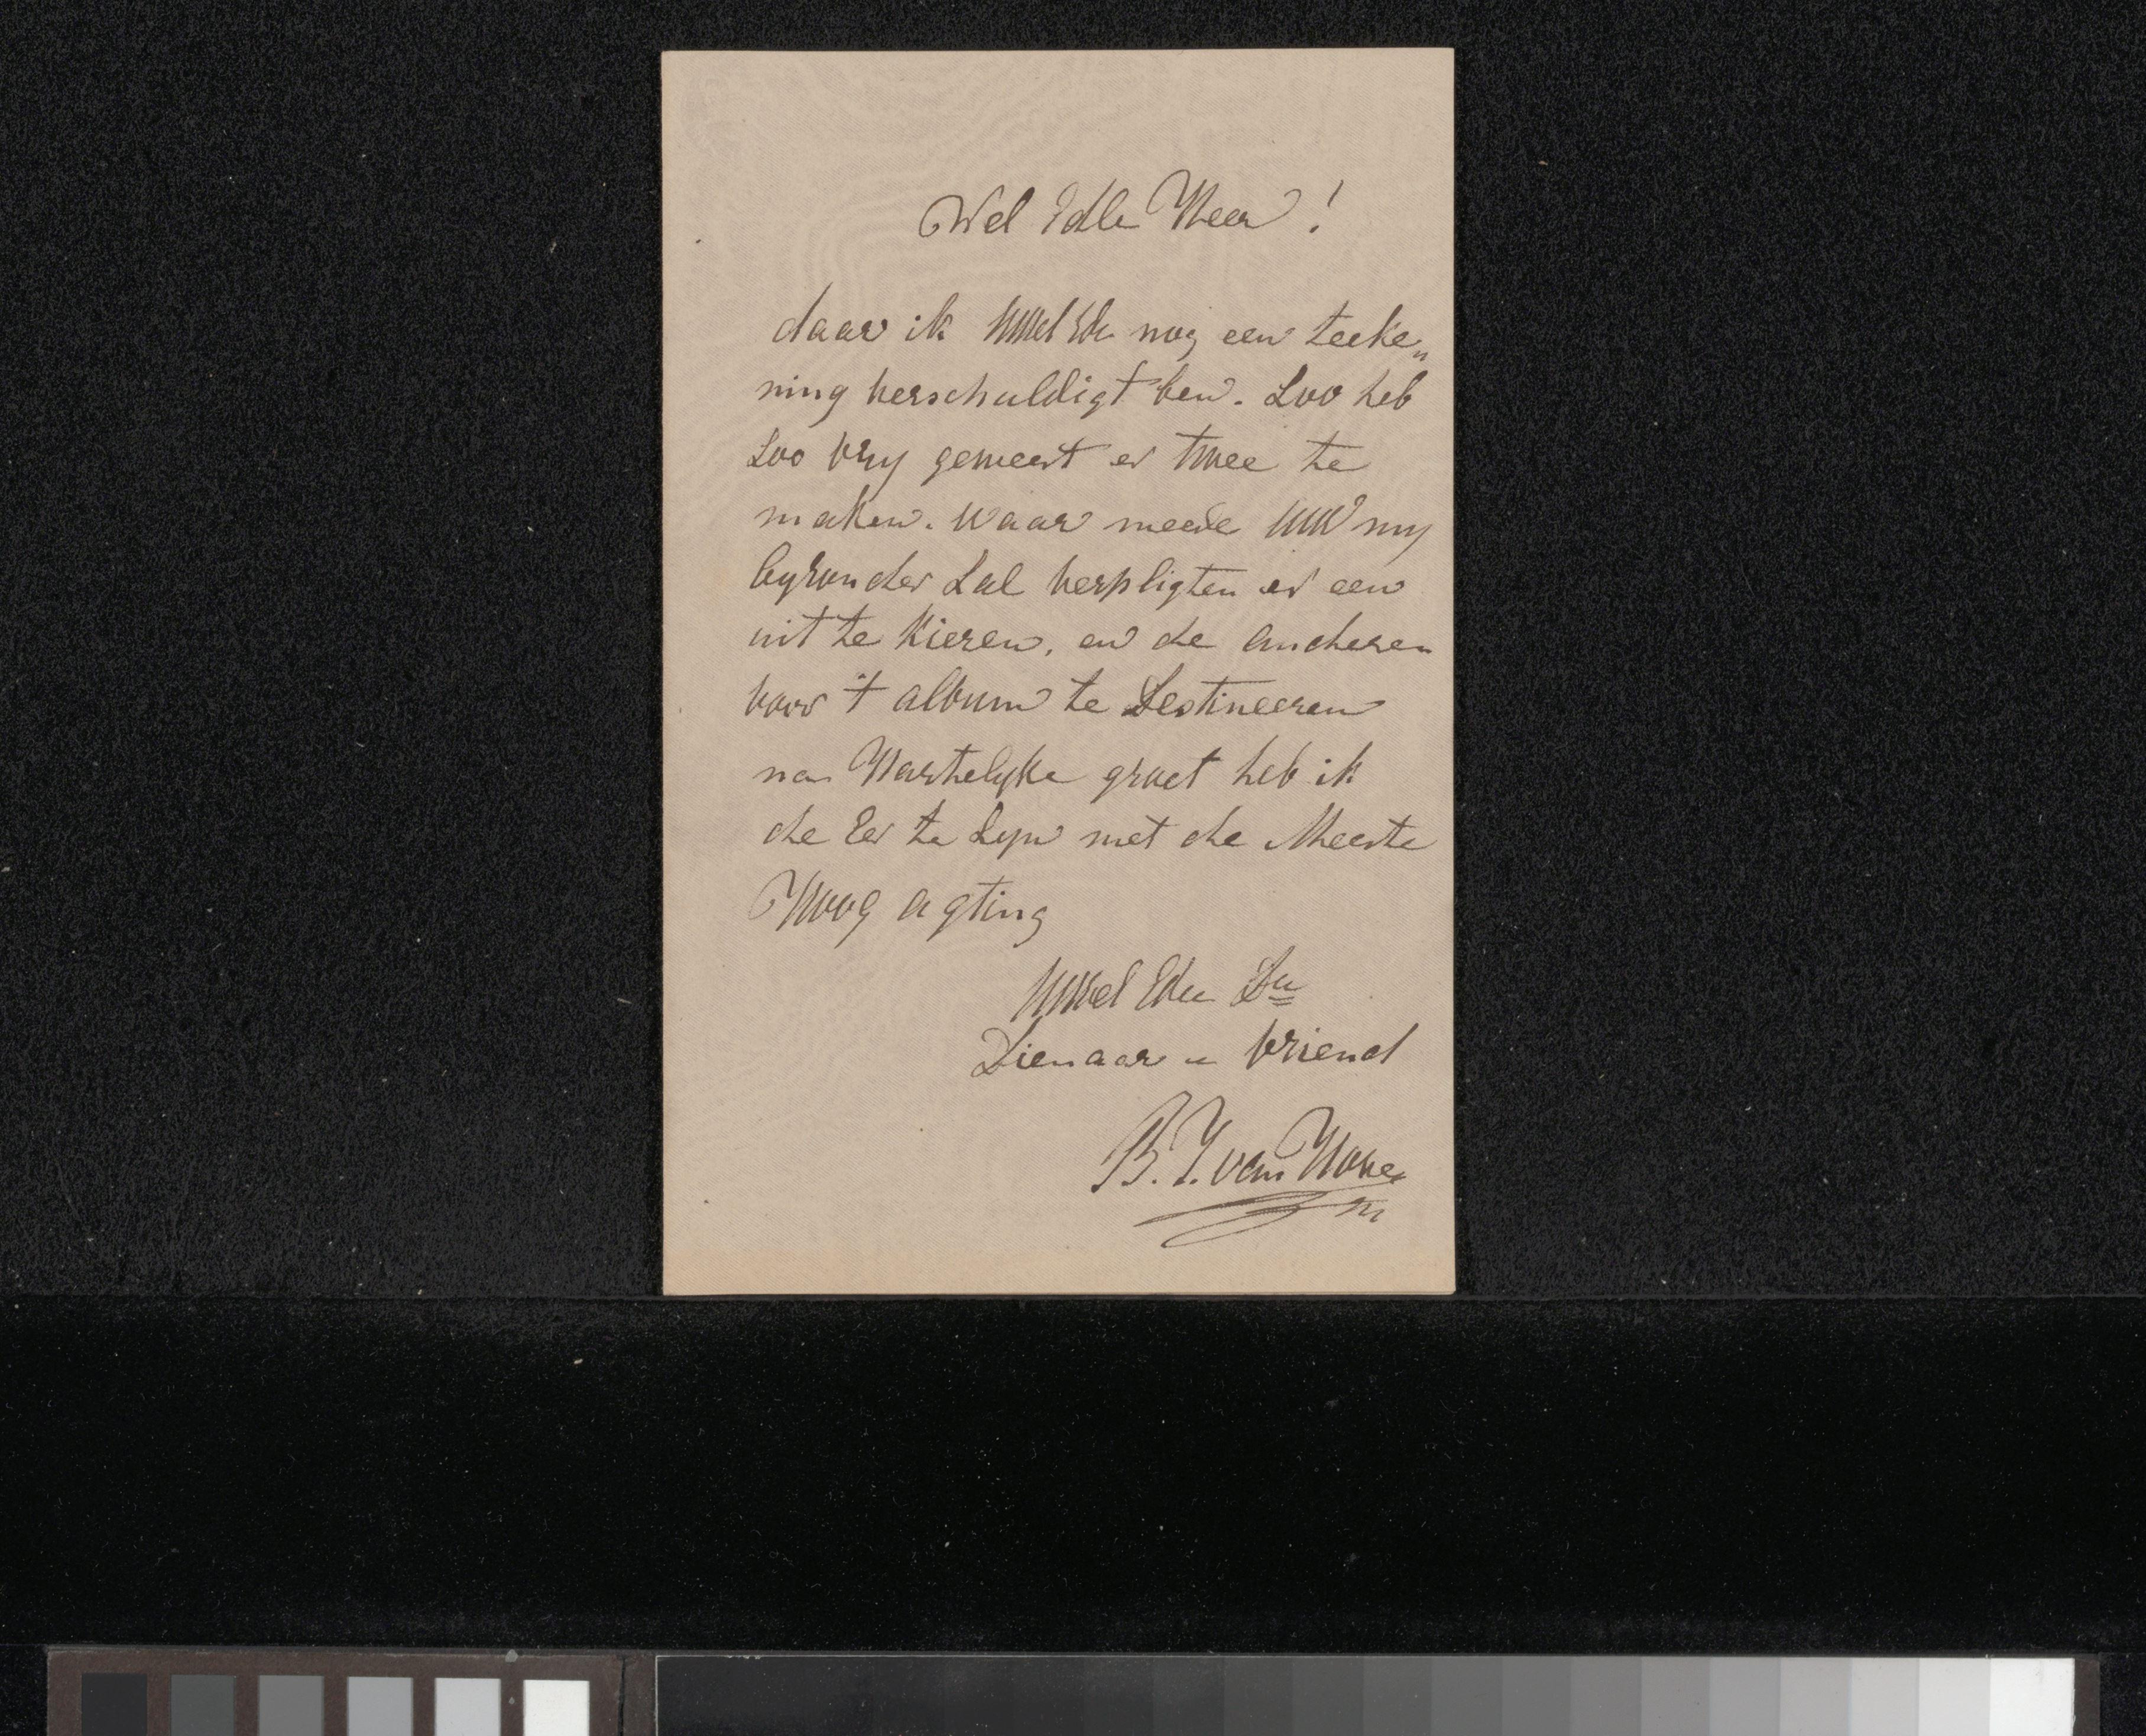 Wel Edle Heer!
daar ik UWelEde nog een teeke„
ning verschuldigt ben. Zoo heb
Zoo vry geweest er twee te
maken. waar meede UW my
byzonder Zal verpligten er een
uit te kiezen, en de anderen
voor 't album te Destineeren
na Hartelyke groet heb ik
de Eer te Zyn met de Meeste
Hoog agting
UWel Edle Du
Dienaar en vriend
B. J. van Hove